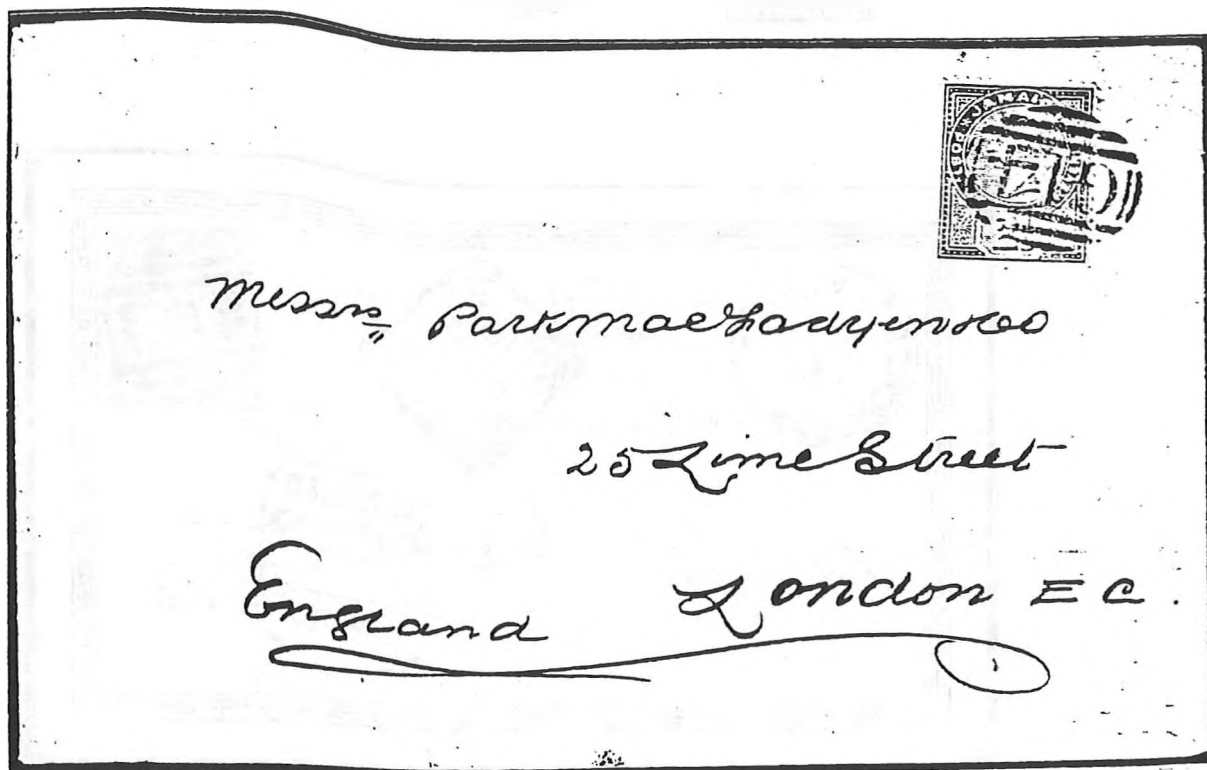 JAMAI
Messrs Park MacFadyen & Co
25 Lime Street
England London E C.